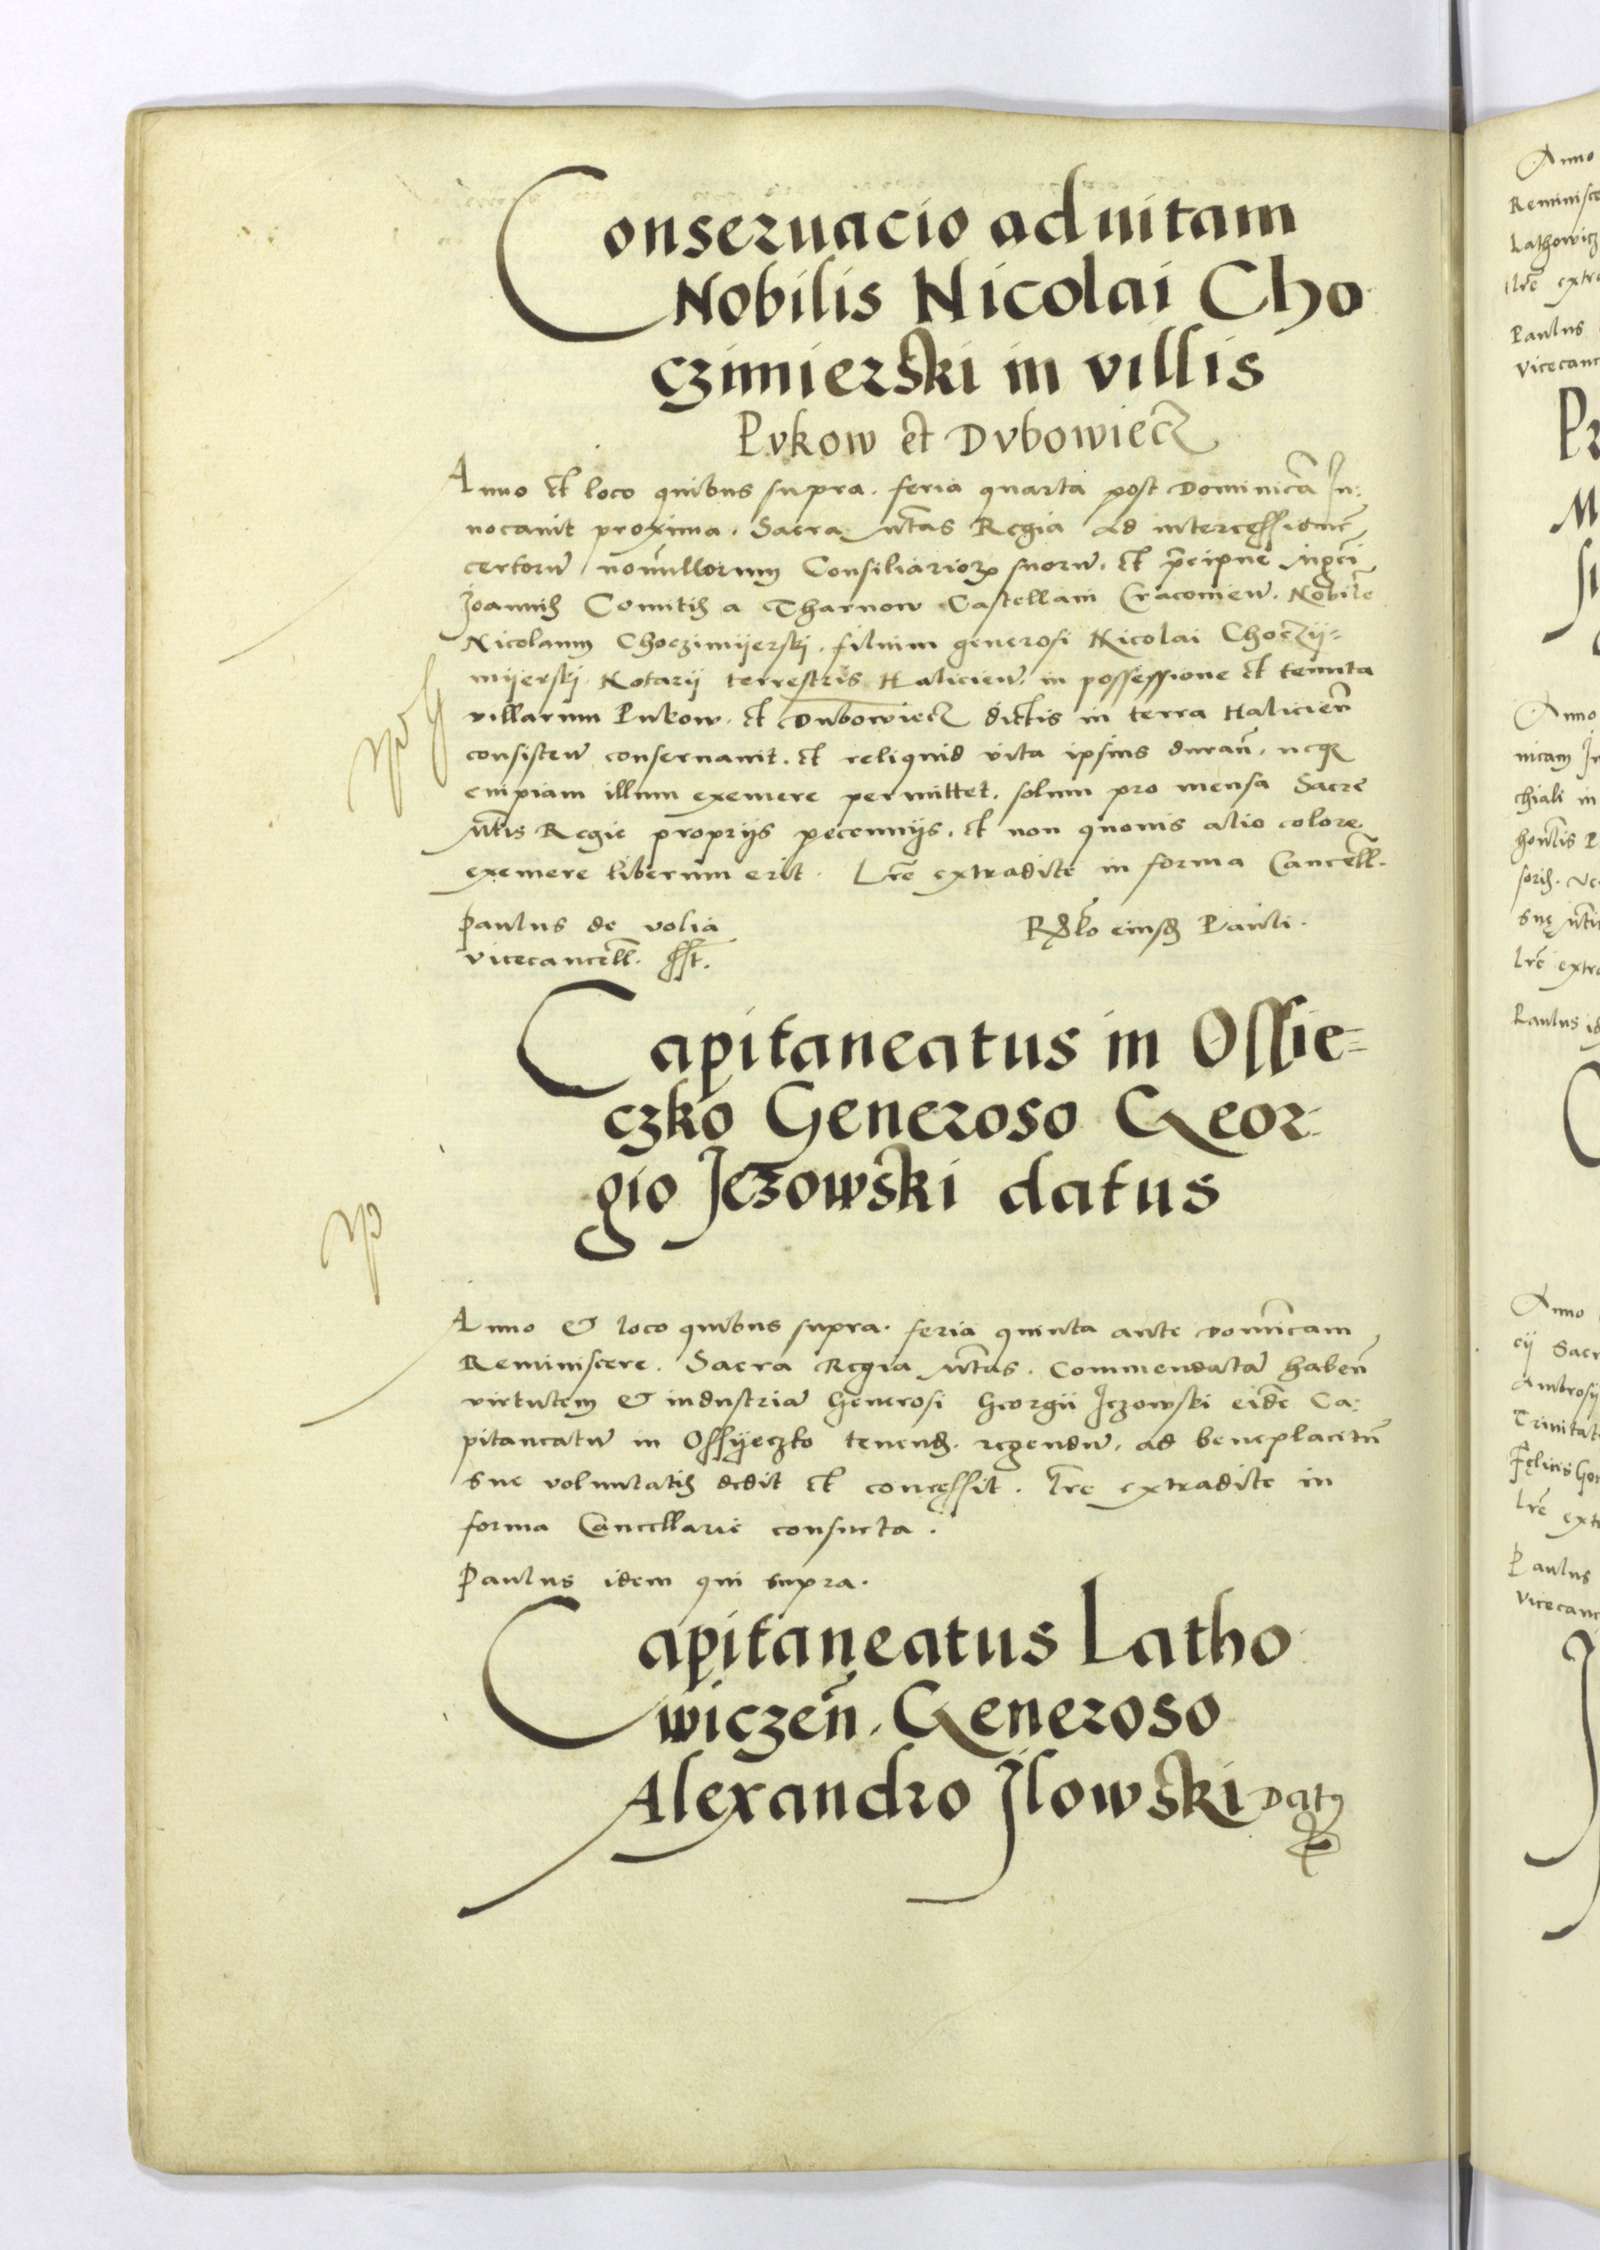 Conseruacio ad uitam
Nobilis Nicolai Cho
czimierski in villis
Pvkow et Dvbowiecz
Anno et loco quibus supra. feria quarta post Dominicã In:
uocauit proxima. Sacra Mtas Regia ad intercessionẽ
certorũ nonnullorum Consiliarioꝝ suorũ. et p̃cipue Mgci
Joannis Comitis a Tharnow Castellani Cracouieñ. Nobilẽ
Nicolaum Choczimijerskj. filium generosi Nicolai Choczij=
mijerskj Notarij terrestris Halicieñ. in possessione et tenuta
villarum Pukow. et Dubowiecz dictis in terra Halicieñ
consisteñ conseruauit. et reliquid vita ipsius durañ. neqꝫ
cuipiam illum exemere permittet. solum pro mensa Sacre
Mtis Regie proprijs pecunnijs. et non quouis alio colore
exemere liberum erit. Lr̃e extradite in forma Cancell.
Paulus de volia
vicecancell. sst.
R̃lo eiusd̃ Pauli.
Capitaneatus in Ossie=
czko Generoso Geor
gio Jezowski datus
Anno & loco quibus supra. feria quinta ante Domĩcam
Reminiscere. Sacra Regia Mtas. Commendatã habeñ
virtutem & industriã Generosi Georgii Jezowski eidẽ Ca:
pitaneatũ in Ossijeczko tenend̃. regendũ. ad beneplacitũ
sue voluntatis dedit et concessit. Lr̃e extradite in
forma Cancellarie consueta.
Paulus idem qui supra.
Capitaneatus Latho
wiczeñ. Generoso
Alexandro Jlowski Datꝰ